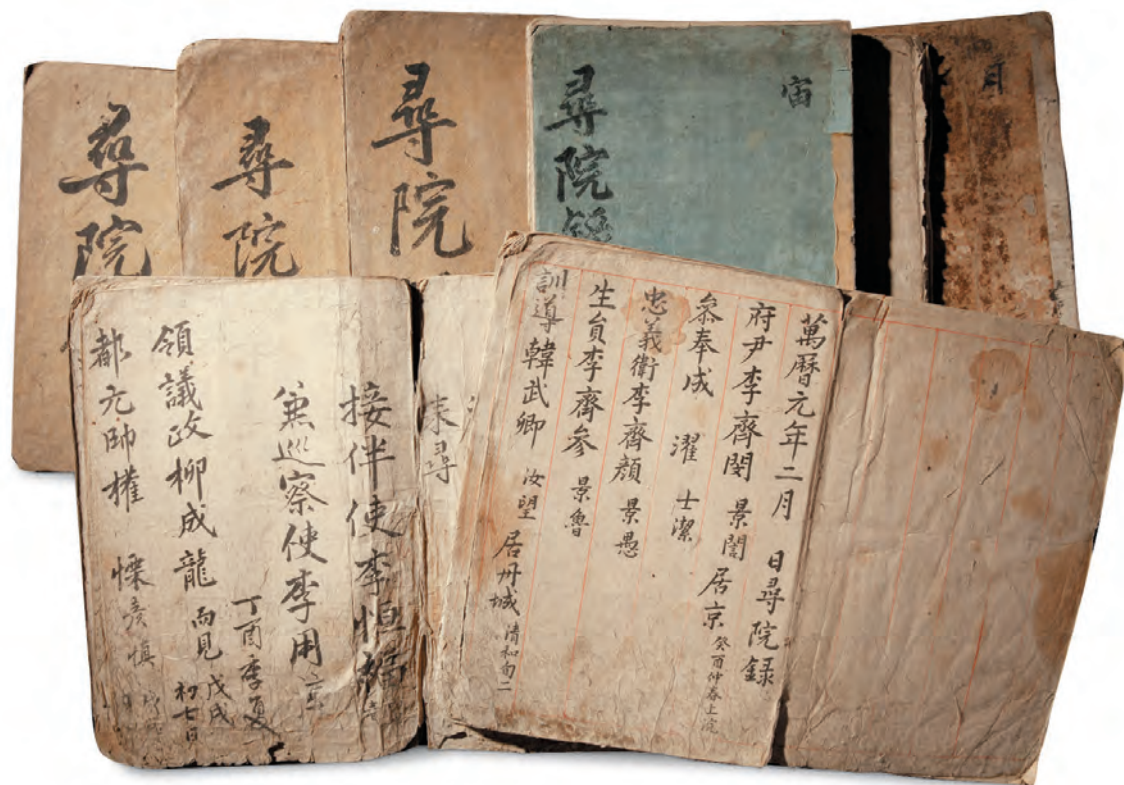 尋院
尋院
尋院
尋院錄
宙
月
萬曆元年二月 日尋院録
府尹李齊閔 景誾 居京 癸酉仲春上浣
叅奉成 濯 士潔
忠義衛李齊顔 景愚
生員李齊參 景魯
訓導韓武卿 汝望 居丹城 清和旬二
来尋
接伴使李恒福
兼巡察使李用淳
丁酉季夏
領議政柳成龍 而見 戊戌 初七日
都元帥權 慄 彦愼